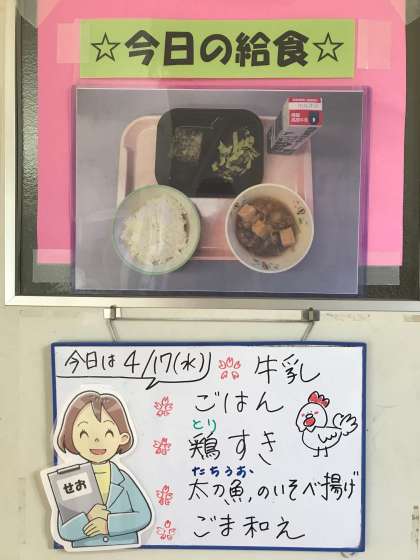 ☆今日の給食☆
今日は 4/17(水)
牛乳
ごはん
とり
鶏すき
たちうお
太刀魚のいそべ揚げ
ごま和え
せお